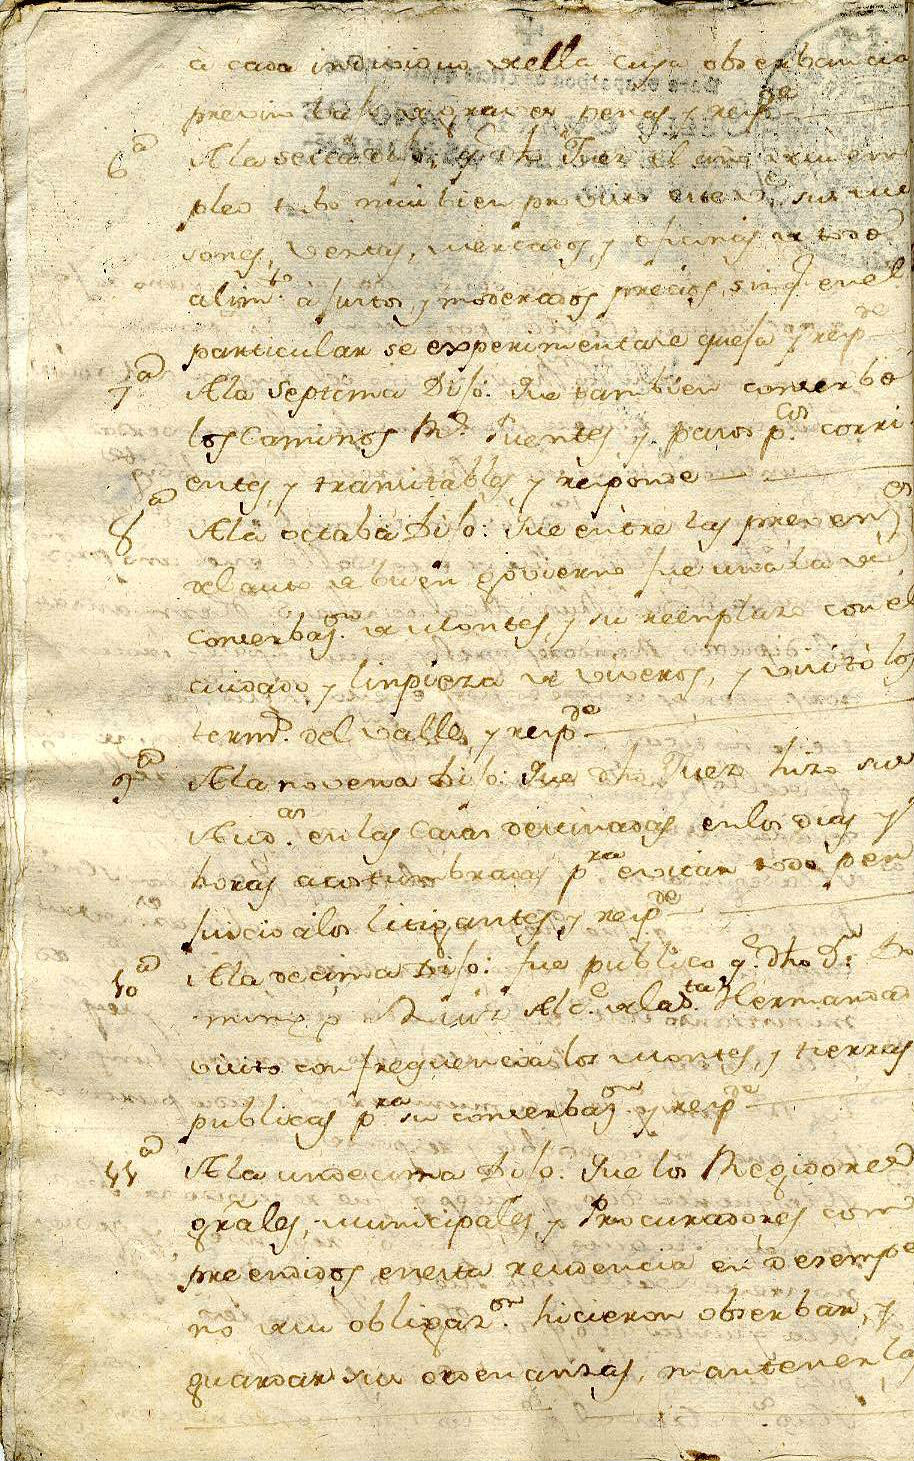 à cada individuo de ella cuya observancia
previno bajo de graves penas, y resp.de
6a A la sexta Dijo: q.e dho Juez el año de su em
pleo tubo mui bien probisto este v, sus me
sones, Ventas, mercados, y oficinas de todo
alim.to a justos, y moderados precios, sin q.e en el
particular se experimentase queja y resp.de
7a A la septima Dijo: Que tambien conserbo
los Caminos R.s Puentes y pasos p.cos corri
entes, y transitables, y responde
8a A la octaba Dijo: Que entre las preven.es
del auto de buen govierno fue una la de
conserbaz.on de Montes, y su reemplazo con el
cuidado y linpieza de viveros, y visitó los
term.s del valle, y resp.de
9a A la novena Dijo: Que dho Juez hizo sus
Aud.as en las Casas destinadas en los dias y
horas acostumbradas p.ra evitar todo per
juicio a los litigantes, y resp.de
10a A la decima Dijo: fue publico q.e dho D.n Do
mingo Alc.e de la S.ta Hermandad
visito con frequencia los montes, y tierras
publicas p.ra su conserbaz.on y resp.de
11a A la undecima Dijo: Que los Regidores
grãles, municipales y Procuradores com
preendidos en esta residencia en desempe
no de su obligaz.on hicieron obserbar, y
guardar sus ordenanzas, mantener la